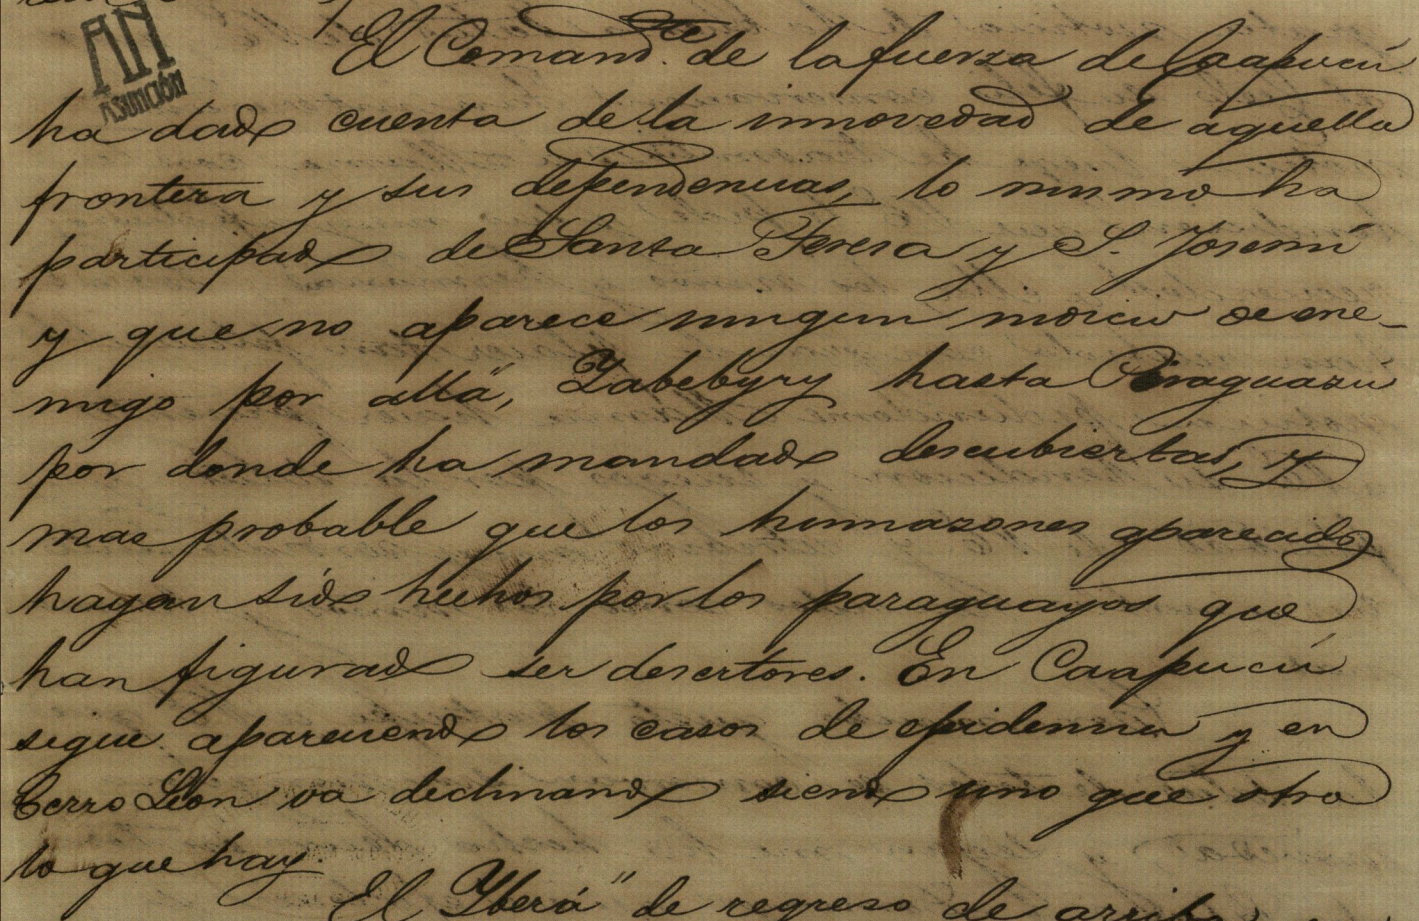 El Comand.te de la fuerza de Caapucú
AN
Asunción
ha dado cuenta de la innovedad de aquella
frontera y sus dependencias, lo mismo ha
participado de Santa Teresa y S. Josemi
y que no aparece ningun indicio de ene-
migo por allá, Yabebyry hasta
por donde ha mandado descubiertas, y
mas probable que los humazones aparecidos
hayan sido hechos por los paraguayos que
han figurado ser desertores. En Caapucú
sigue apareciendo los casos de epidemia y en
Cerro Leon va declinando siendo uno que otro
lo que hay.
El "Yberá" de regreso de